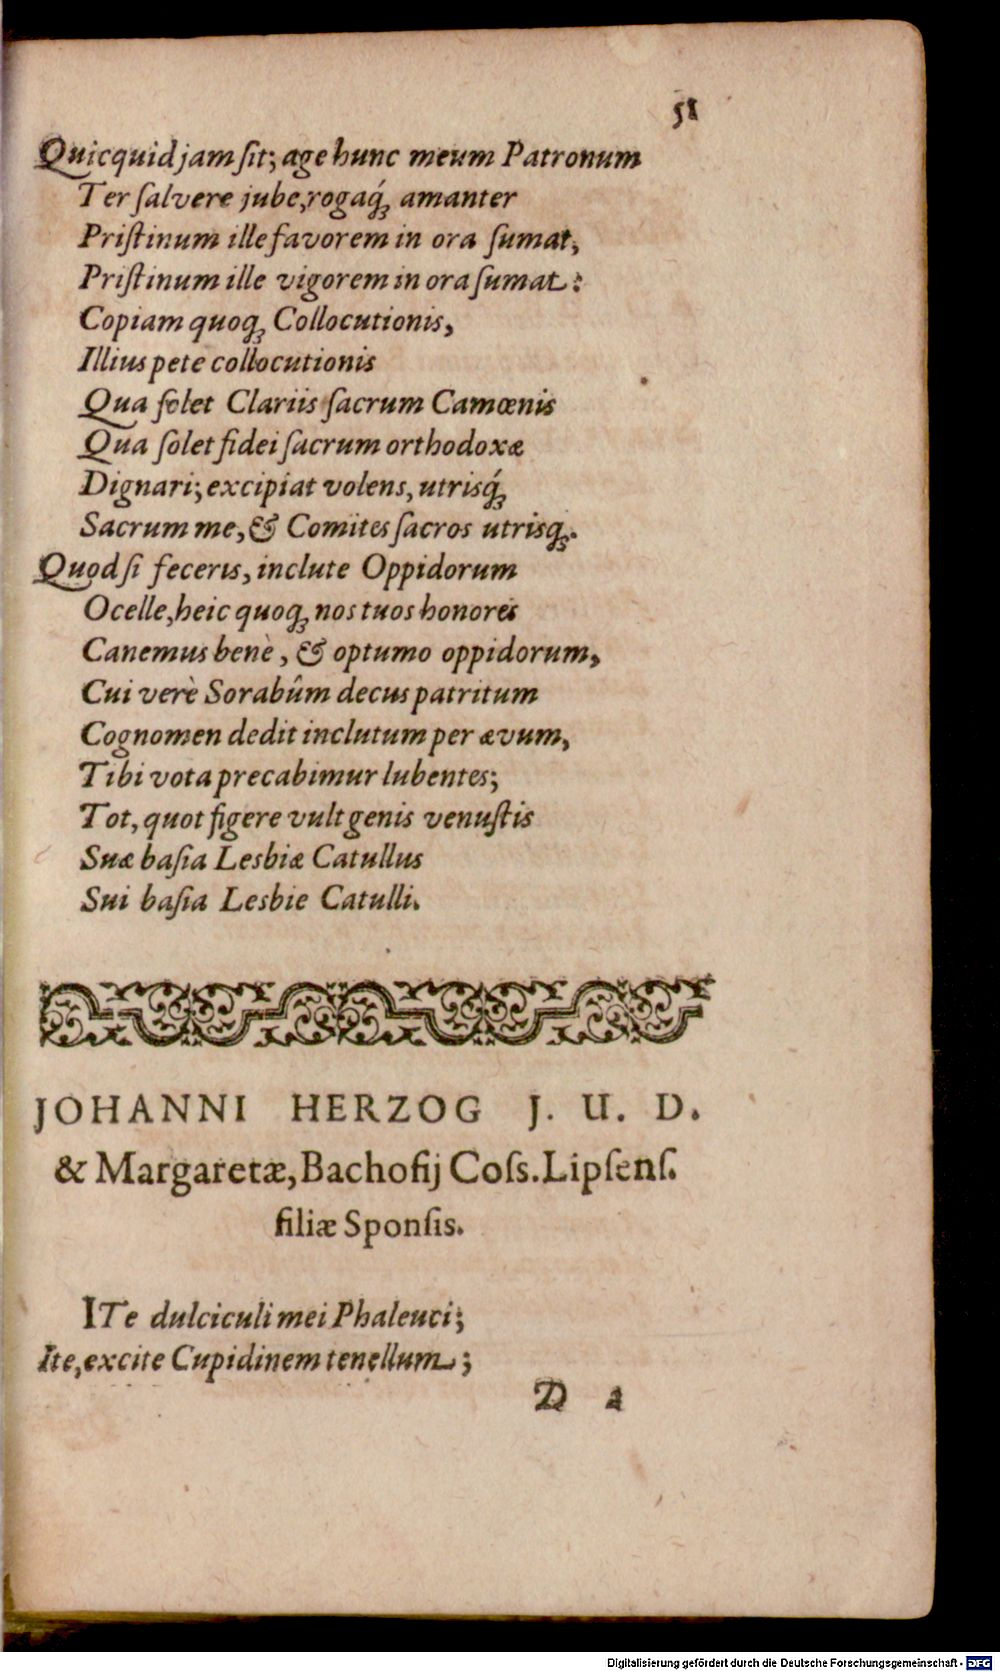 51
Quicquid jam ſit; age hunc meum Patronum
Ter ſalvere jube, rogaq́ꝫ amanter
Priſtinum ille favorem in ora ſumat,
Priſtinum ille vigorem in ora ſumat:
Copiam quoqꝫ Collocutionis,
Illius pete collocutionis
Qua ſolet Clariis ſacrum Camœnis
Qua ſolet fidei ſacrum orthodoxæ
Dignari; excipiat volens, utrisq́ꝫ
Sacrum me, & Comites ſacros utrisqꝫ.
Quod ſi feceris, inclute Oppidorum
Ocelle, heic quoqꝫ nos tuos honores
Canemus benè, & optumo oppidorum,
Cui verè Sorabûm decus patritum
Cognomen dedit inclutum per ævum,
Tibi vota precabimur lubentes;
Tot, quot figere vult genis venuſtis
Suæ baſia Lesbiæ Catullus
Sui baſia Lesbie Catulli.
JOHANNI HERZOG J. U. D.
& Margaretæ, Bachofij Coſs. Lipſenſ.
filiæ Sponſis.
ITe dulciculi mei Phaleuci;
Ite, excite Cupidinem tenellum;
D 2
Digitalisierung gefördert durch die Deutsche Forschungsgemeinschaft - DFG